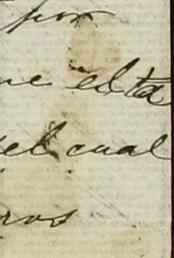 por
ne el ta
el cual
ros